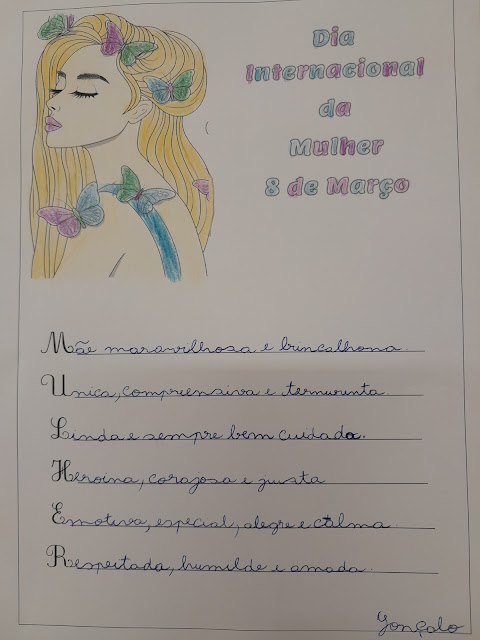 Dia
Internacional
da
Mulher
8 de Março
Mãe maravilhosa e brincalhona.
Unica, compreensiva e ternurenta
Linda e sempre bem cuidada.
Heroina, corajosa e justa
Emotiva, especial, alegre e calma.
Respeitada, humilde e amada.
Gonçalo